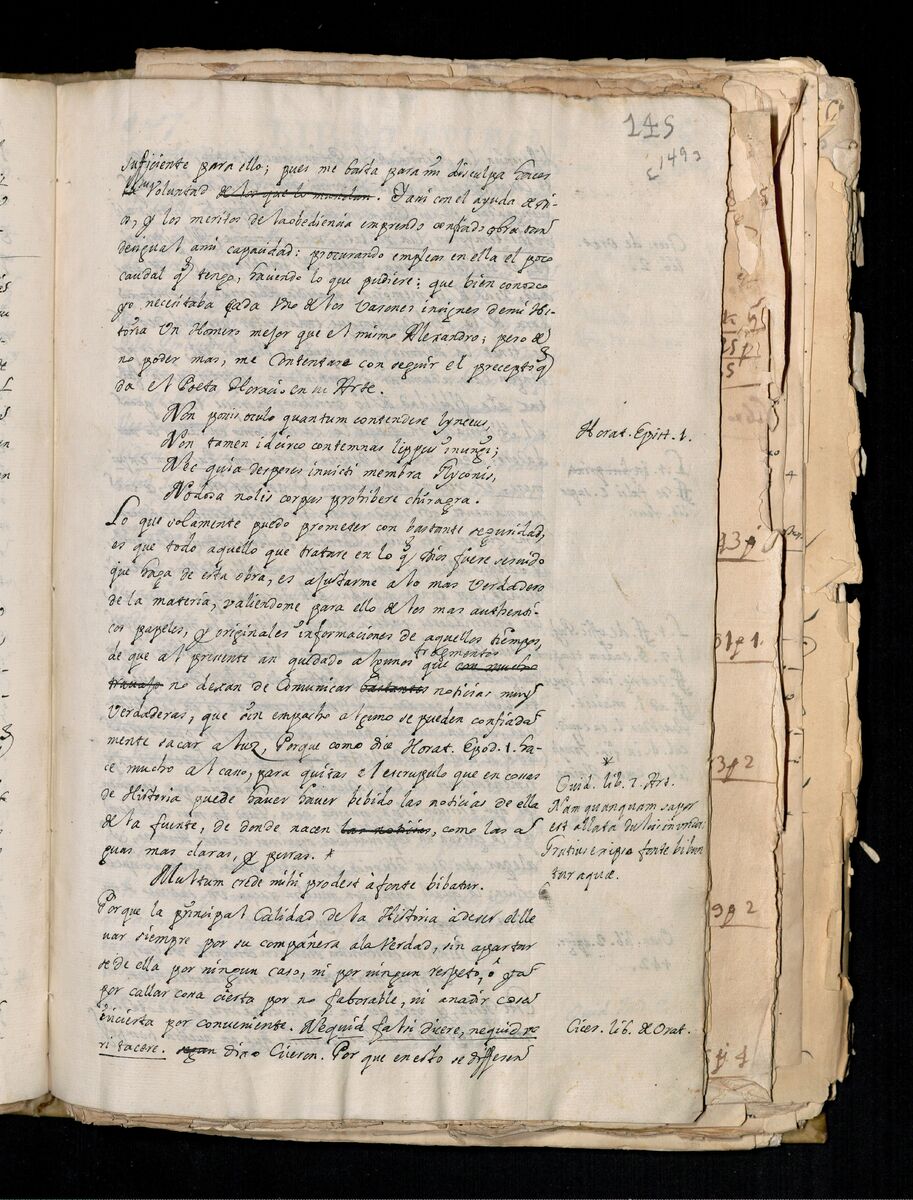 145
1492
sufficiente para ello; pues me basta para mi disculpa hacer
la su voluntad de los que lo mandan. Y assi con el ayuda de Di-
os, y los meritos de la obediencia emprendo confiado obra tan
desigual a mi capacidad: procurando emplear en ella el poco
caudal q tengo, haciendo lo que pudiere: que bien conozco
yo necesitaba cada uno de los Varones insignes de mi His-
toria Un Homero mejor que el mismo Alexandro; pero de
no poder mas, me contentare con seguir el precepto q
da el Poeta Horacio en su Arte.
Non possis oculo quantum contendere lynceus,
Non tamen idcirco contemnas lippus inungi;
Nec quia desperes invicti membra Glyconis,
Nodosa nolis corpus prohibere chiragra.
Horat. Epist. 1.
Lo que solamente puedo prometer con bastante seguridad,
es que todo aquello que tratare en lo q Dios fuere servido
que haga de esta obra, es ajustarme a lo mas Verdadero
de la materia, valiendome para ello de los mas authenti-
cos papeles, y originales informaciones de aquellos tiempos,
de que al presente an quedado algunos fragmentos que con mucho
trauajo no dexan de Comunicar bastantes noticias muy
Verdaderas, que sin empacho alguno se pueden confiada
mente sacar a luz, Porque como dice Horat. Epod. 1. ha-
ce mucho al caso, para quitar el escrupulo que en cosas
de Historia puede haver haver bebido las noticias de ella
de la fuente, de donde nacen las noticias, como las a
guas mas claras, y puras. *
* Ovid. lib. 2. Art.
Nam quanquam sapor
est allata dulcis in unda,
Gratius e ripso fonte bibun
tur aquæ.
Multum crede mihi prodest à fonte bibatur.
Porque la principal Calidad de la Historia à de ser el lle
uar siempre por su compañera a la Verdad, sin apartar
se de ella por ningun caso, ni por ningun respeto, ò ya
por callar cosa cierta por no faborable, ni anadir cosa
incierta por conveniente. Nequid falsi dicere, nequid ve
ri tacere. segun dixo Ciceron. Por que en esto se differen
Cicer. lib. de Orat.